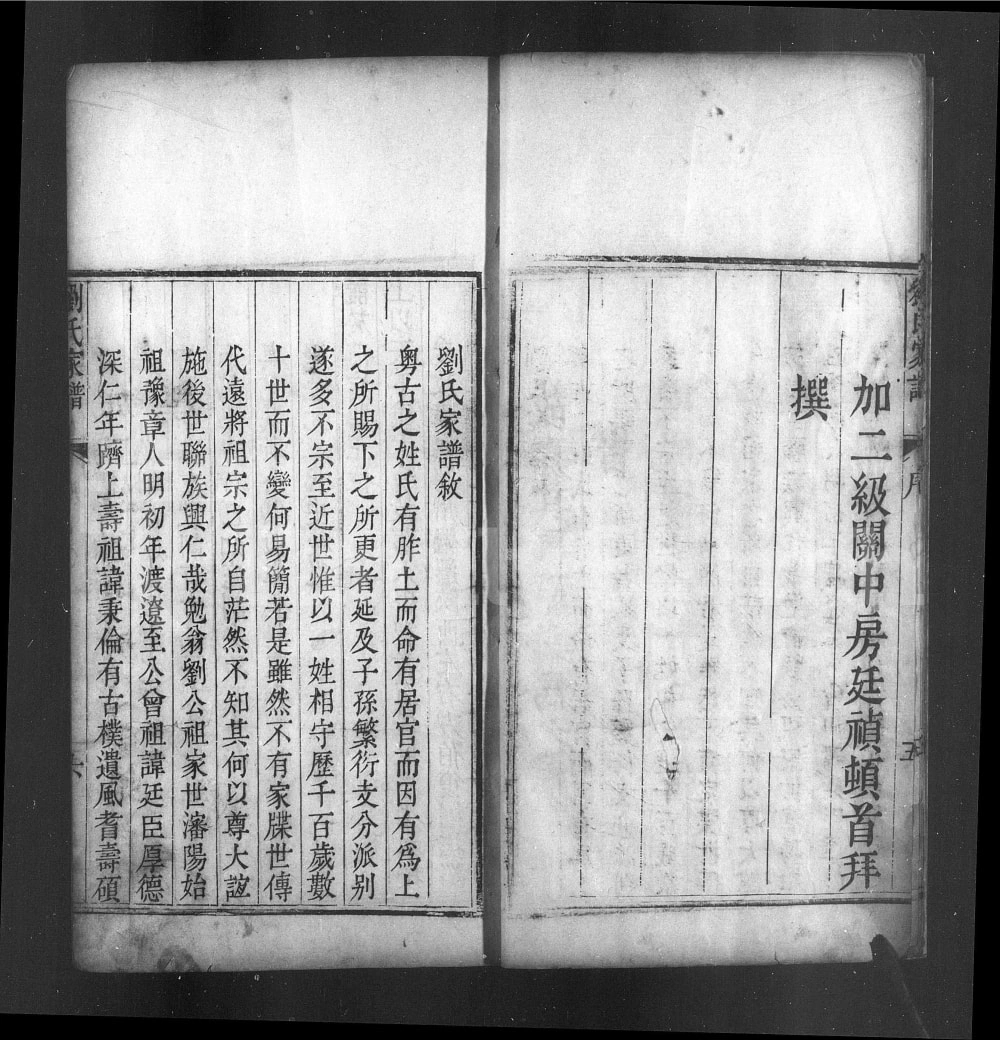 劉氏家譜
序
五
加二級關中房廷禎頓首拜
撰
劉氏家譜敘
粤古之姓氏有胙土而命有居官而因有爲上
之所賜下之所更者延及子孫繁衍支分派别
遂多不宗至近世惟以一姓相守歷千百歲數
十世而不變何易簡若是雖然不有家牒世傳
代遠將祖宗之所自茫然不知其何以尊大誼
施後世聯族興仁哉勉翁劉公祖家世瀋陽始
祖豫章人明初年渡遼至公曾祖諱廷臣厚德
深仁年躋上壽祖諱秉倫有古樸遺風耆壽碩
劉氏家譜
六